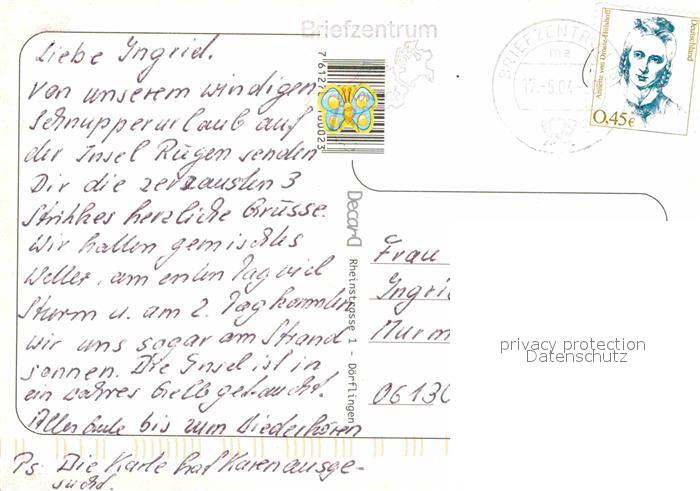 Briefzentrum
BRIEFZENTRUM
ma
12.-5.04
Deutschland
Annette von Droste-Hülshoff
0,45€
Liebe Ingrid.
Von unserem windigen
Schnupperurlaub auf
der Insel Rügen senden
Dir die zerzausten 3
herzliche Grüsse.
Wir hatten gemischtes
Wetter, am ersten Tag viel
Sturm u. am 2. Tag konnten
wir uns sogar am Strand
sonnen. Die Insel ist in
ein wahres Gelb getaucht.
Alles Gute bis zum Wiederhören
Ps: Die Karte hat Karen ausge-
sucht.
DecarD
Rheinstrasse 1 - Dörflingen
Frau
Ingri
Murm
privacy protection
Datenschutz
0613